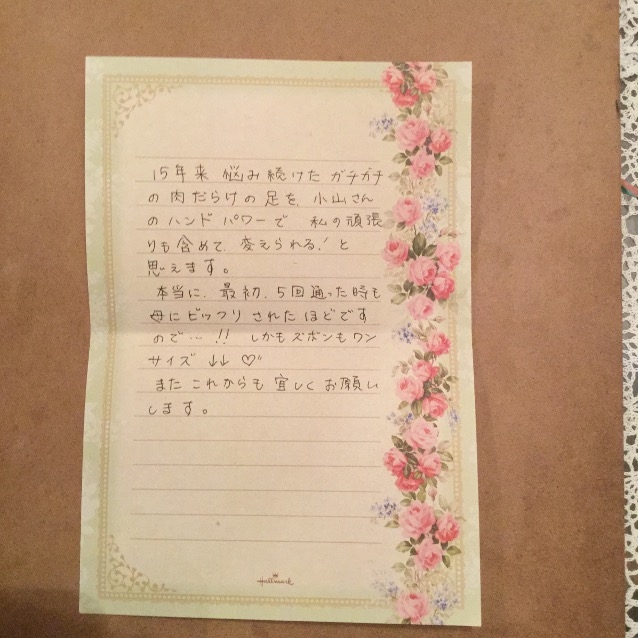 15年来 悩み続けた ガチガチ
の肉だらけの足を、小山さん
のハンドパワーで 私の頑張
りも含めて、変えられる!と
思えます。
本当に、最初、5回通った時も
母にビックリされたほどです
ので… !! しかもズボンもワン
サイズ ↓↓ ♡"
またこれからも宜しくお願い
します。
Hallmark